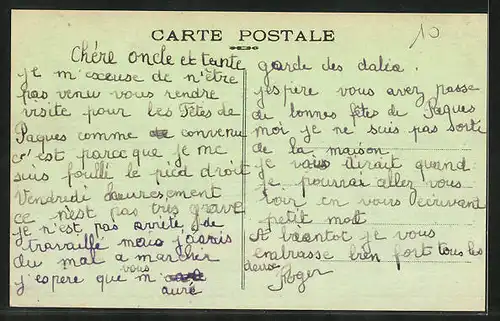 CARTE POSTALE
10
Chére oncle et tante
je m'excuse de n'être
pas venu vous rendre
visite pour les Fêtes de
Paques comme convenu
c'est parce que je me
suis foullé le pied droit
Vendredi heuresement
ce n'est pas très grave
je n'est pas arrêté de
travaillé mais j'avais
du mal a marcher
j'espere que vous m'
auré
garde des dalia.
j'espere vous avez passe
de bonnes fêtes de Paques
moi je ne suis pas sorti
de la maison
je vous dirait quand
je pourrai allez vous
voir en vous ecrivant
petit mot
A bientot je vous
embrasse bien fort tous les
deux
Roger